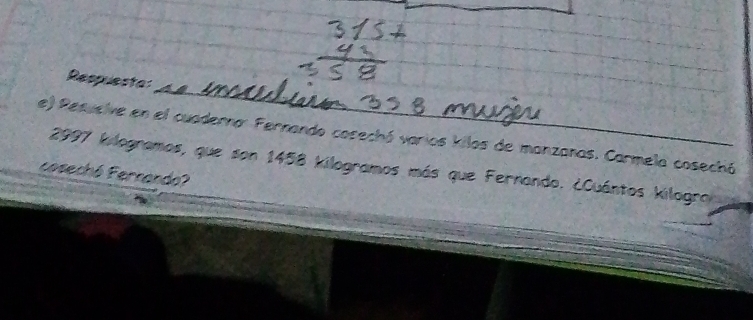 315+
43
358
Respuesta: se inscribieron 358 mujer
e) Resuelve en el cuaderno: Fernando cosechó varios kilos de manzanas. Carmela cosechó
2997 kilogramos, que son 1458 kilogramos más que Fernando. ¿Cuántos kilogra
cosechó Fernando?